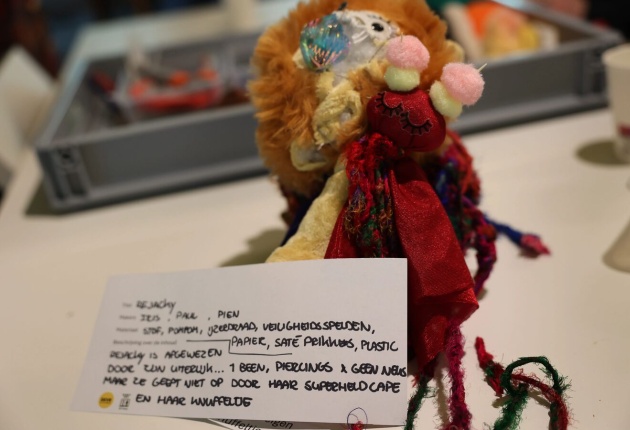 Titel REJACKY
Makers IRIS, PAUL, PIEN
Materiaal STOF, POMPOM, IJZERDRAAD, VEILIGHEIDSSPELDEN,
PAPIER, SATÉ PRIKKERS, PLASTIC
Beschrijving van de inhoud
REJACKY IS AFGEWEZEN
DOOR ZIJN UITERLIJK... 1 BEEN, PIERCINGS & GEEN NEUS
MAAR ZE GEEFT NIET OP DOOR HAAR SUPERHELD CAPE
EN HAAR KNUFFELDE